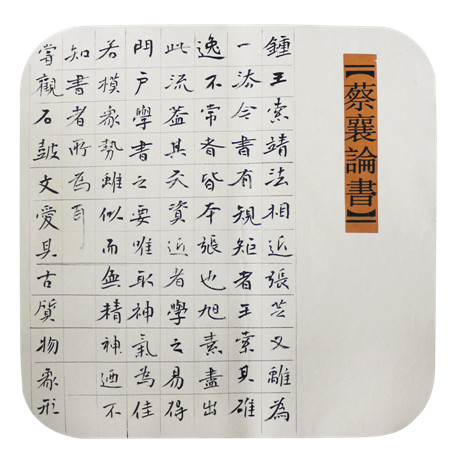 【蔡襄論書】
鍾王索靖法相近張芝又離為
一法今書有規矩者王索其雄
逸不常者皆本張也旭素盡出
此流蓋其天資近者學之易得
門戶學書之要唯取神氣為佳
若模象勢雖似而無精神迺不
知書者所為耳
嘗觀石皷文愛其古質物象形